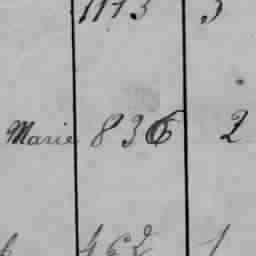 1173 3
Marie 836 2
462 1